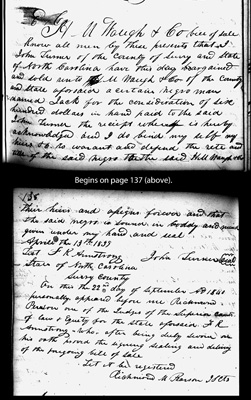 H. U Waugh & Co bill of sale
Know all men by these presents that I
John Turner of the County of Surry and State
of North Carolina have this day bargained
and sold unto H. U Waugh & Co of the County
and State aforesaid a certain negro man
named Jack for the consideration of six
hundred dollars in hand paid to the said
John Turner the receipt whereof is hereby
acknowledged and I do bind my self my
heirs &c to warant and defend the rite and
of the said negro to the said H U Waugh & Co
Begins on page 137 (above).
138
their heirs and assigns forever and that
the said negro is sound in boddy and mind
given under my hand and seal
Aprile the 13th 1837
Test F K Armstrong John Turner Seal
State of North Carolina
Surry County
On this the 22nd day of September AD 1841
personally appeared before me Richmond
Pearson one of the Judges of the Superior Courts
of law & Equity for the State aforesaid F K
Armstrong who after being duly sworn on
his oath proved the signing sealing and delivery
of the foregoing bill of sale
Let it be registered
Richmond M Pearson